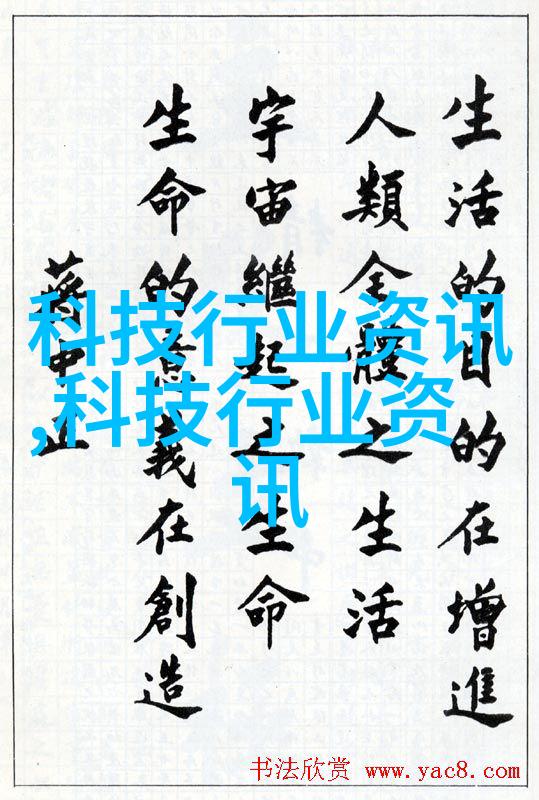 生活的目的在增進
人類全體之生活
宇宙繼起之生命
生命的意義在創造
蔣中正
科技行业资讯
,科技行业资
讯
书法欣赏 www.yac8.com